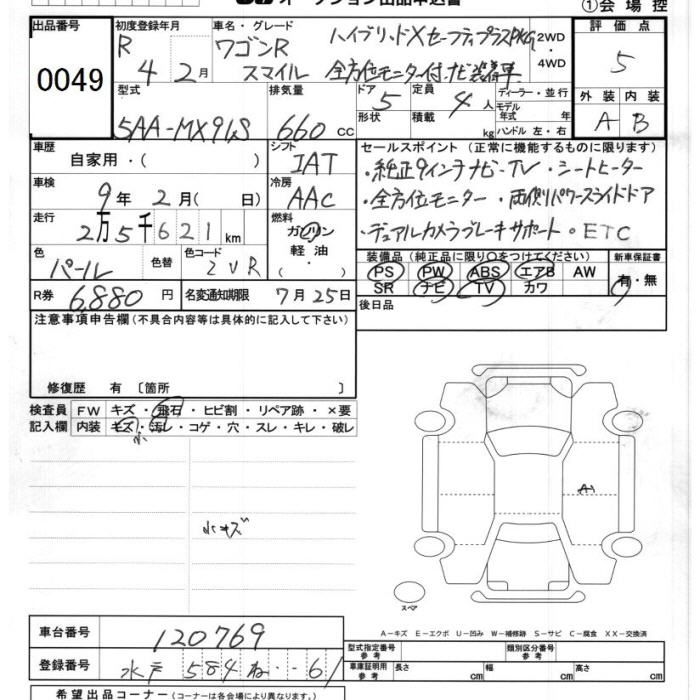 オークション出品申込書
①会場控
出品番号 0049
初度登録年月 R 4年 2月
車名・グレード ワゴンR スマイル ハイブリッドXセーフティプラスPKG
全方位モニター付ナビ装着車
2WD・4WD
評価点 5
外装 A 内装 B
型式 5AA-MX91S
排気量 660 cc
ドア 5 定員 4人
形状 積載 kg
ディーラー・並行
モデル年式 年
ハンドル 左・右
車歴 自家用・( )
シフト IAT
車検 9年 2月( 日)
冷房 AAC
走行 2万5千621km
燃料 ガソリン・軽油・
色 パール 色替 色コード ZVR
R券 6,880円 名変通知期限 7月25日
セールスポイント (正常に機能するものに限ります)
・純正9インチナビ・TV・シートヒーター
・全方位モニター・両側パワースライドドア
・デュアルカメラブレーキサポート・ETC
装備品 (純正品に限り○をつけてください)
新車保証書
PS PW ABS エアB AW 有・無
SR ナビ TV カワ
後日品
注意事項申告欄(不具合内容等は具体的に記入して下さい)
修復歴 有 〔箇所 〕
検査員記入欄 FW キズ・飛石・ヒビ割・リペア跡・×要
内装 キズ・汚レ・コゲ・穴・スレ・キレ・破レ
小
小キズ
A1
スペア
A－キズ E－エクボ U－凹み W－補修跡 S－サビ C－腐食 XX－交換済
車台番号 120769
登録番号 水戸 584 ね ・・61
型式指定番号 参考 類別区分番号 参考
車庫証明用 参考 長さ cm 幅 cm 高さ cm
希望出品コーナー(コーナーは各会場により異なります。)